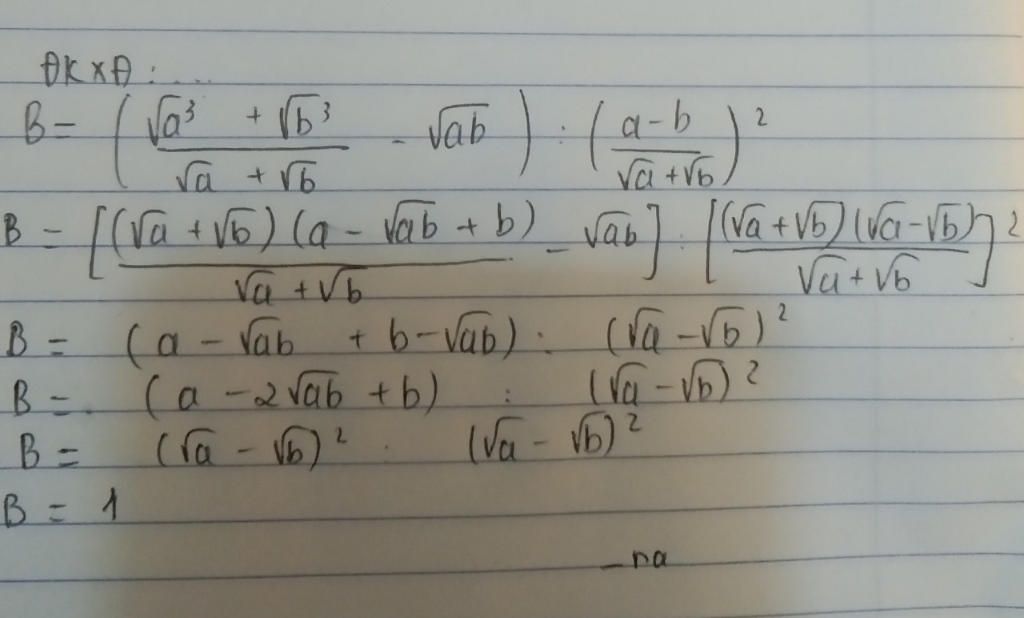 ĐKXĐ: ....
B = ( (√a³ + √b³)/(√a + √b) - √ab ) : ( (a - b)/(√a + √b) )²
B = [ (√a + √b)(a - √ab + b)/(√a + √b) - √ab ] : [ (√a + √b)(√a - √b)/(√a + √b) ]²
B = (a - √ab + b - √ab) : (√a - √b)²
B = (a - 2√ab + b) : (√a - √b)²
B = (√a - √b)² : (√a - √b)²
B = 1
_na